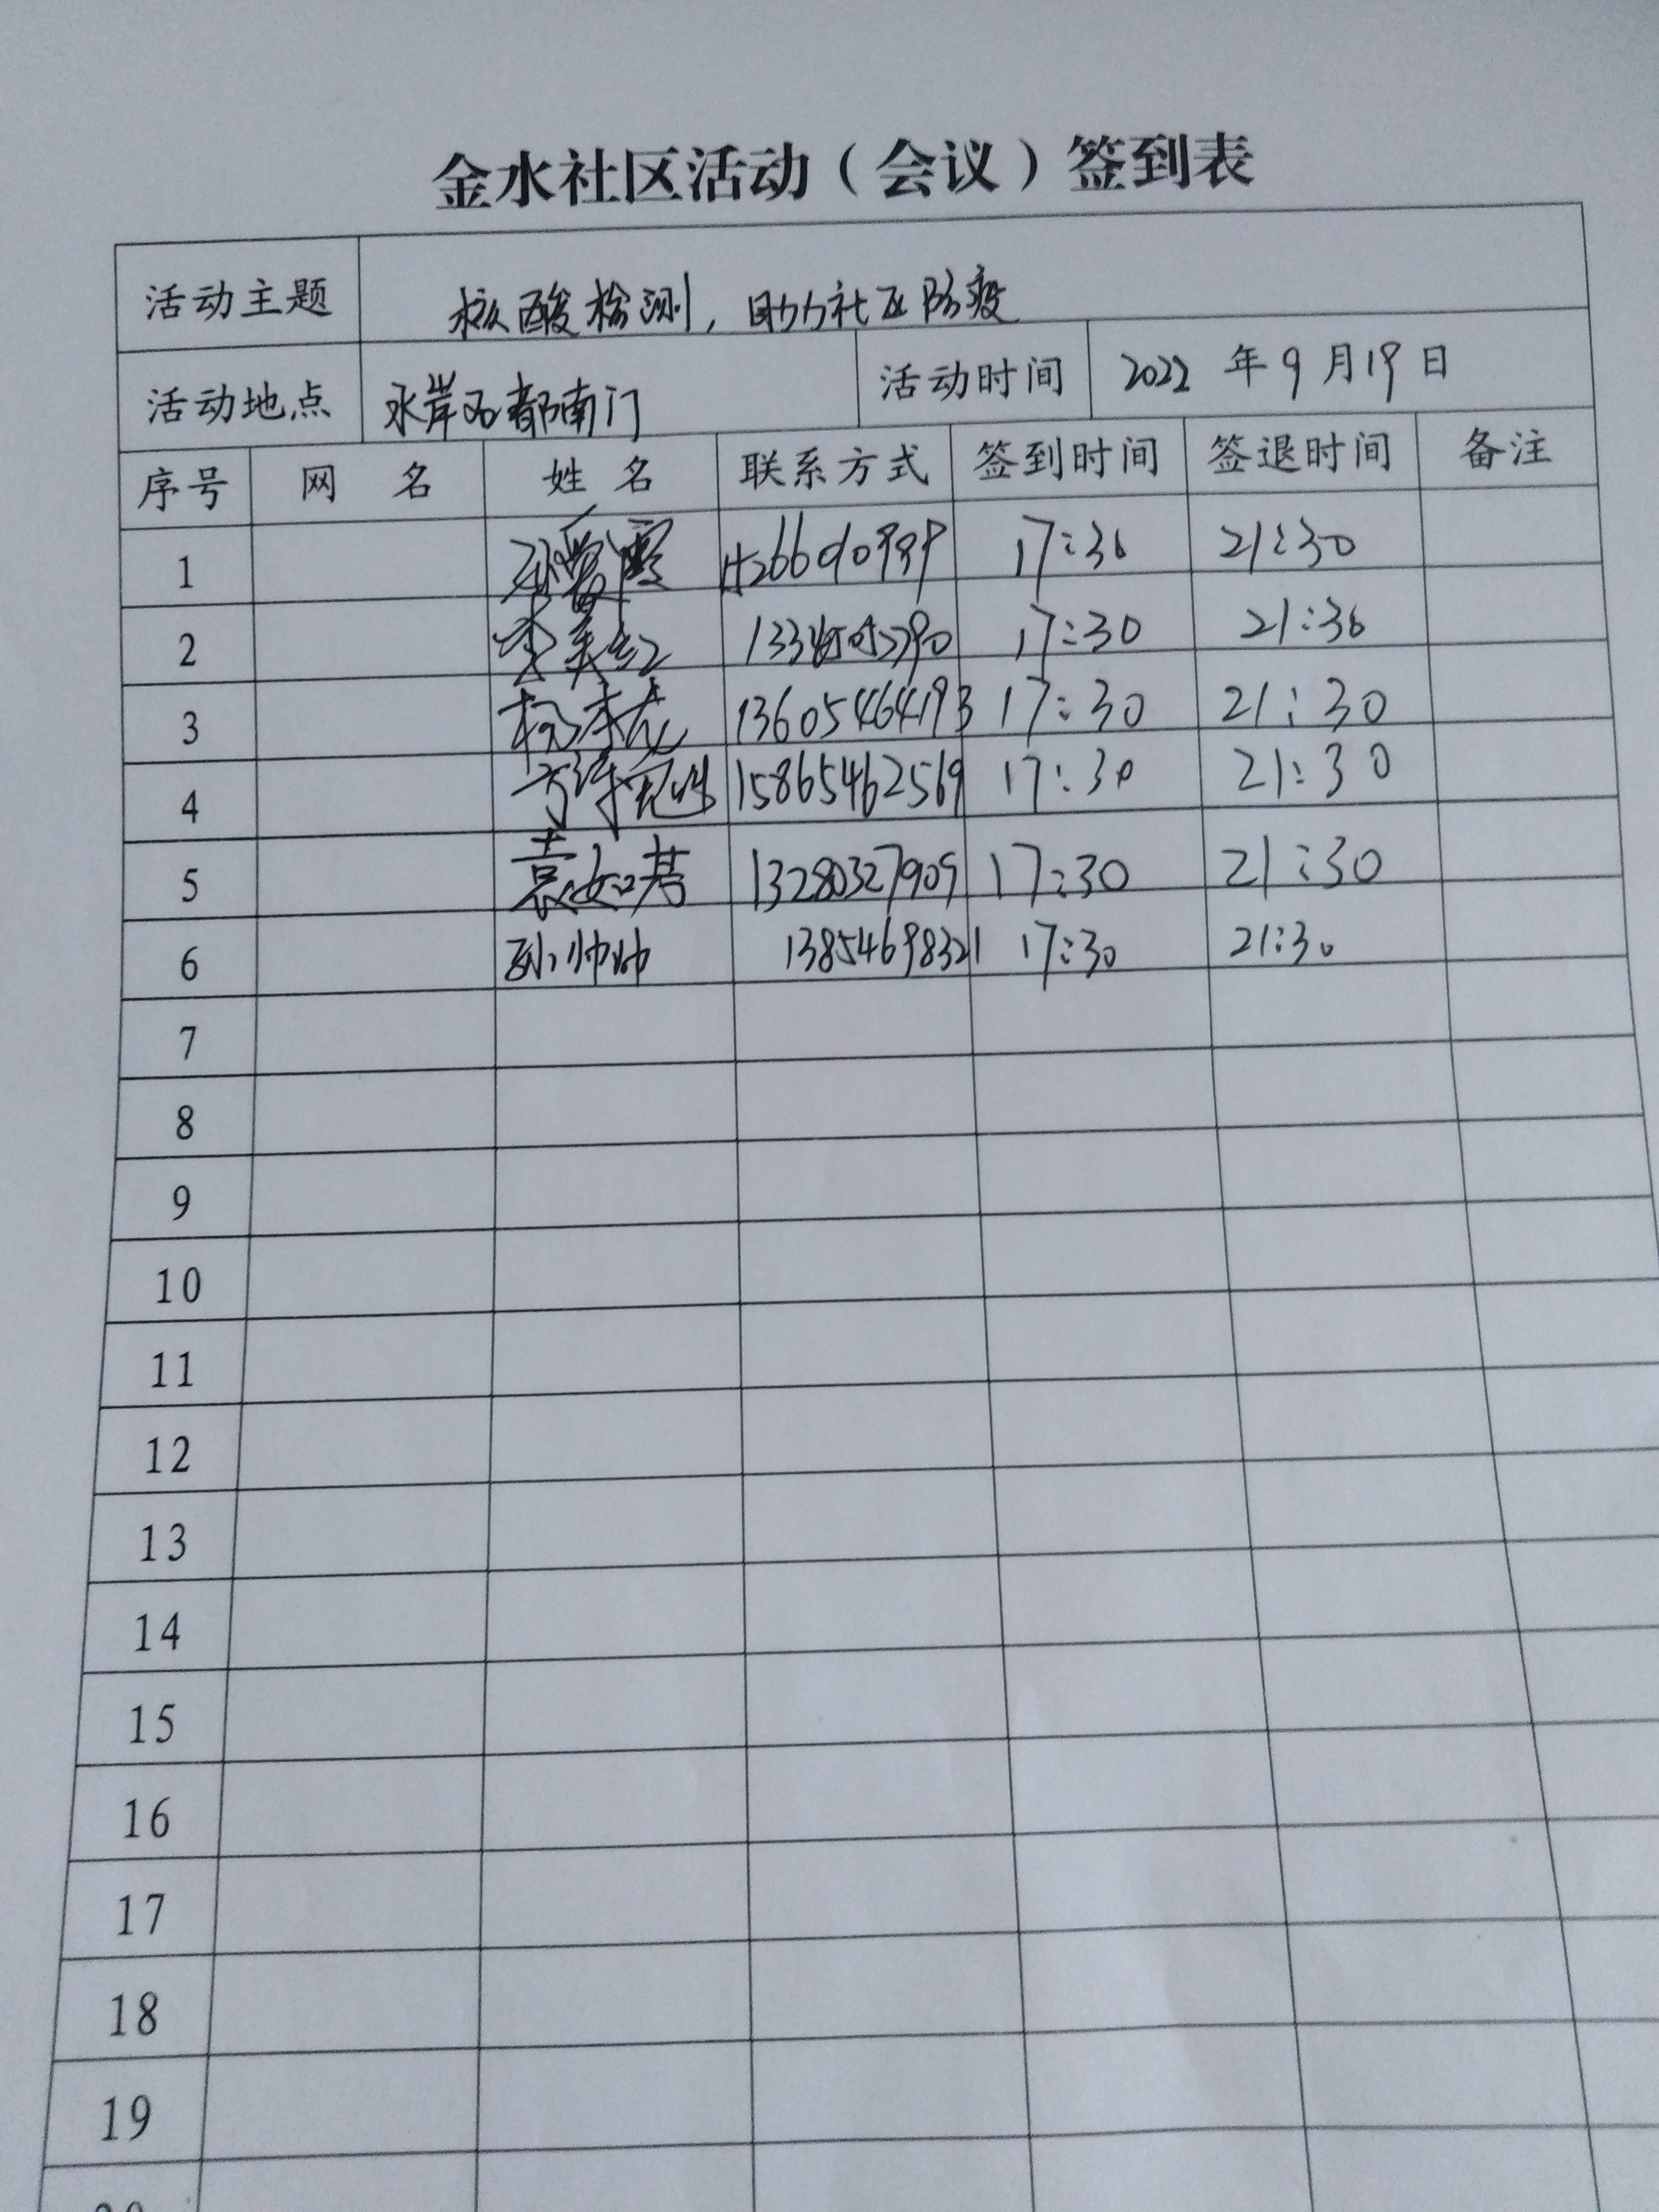 金水社区活动（会议）签到表
活动主题 核酸检测，助力社区防疫
活动地点 水岸名都南门 活动时间 2022 年 9 月 19 日
序号 网 名 姓 名 联系方式 签到时间 签退时间 备注
1 17:30 21:30
2 17:30 21:30
3 13605464193 17:30 21:30
4 15865462569 17:30 21:30
5 13280327909 17:30 21:30
6 孙帅帅 13854698321 17:30 21:30
7
8
9
10
11
12
13
14
15
16
17
18
19
20